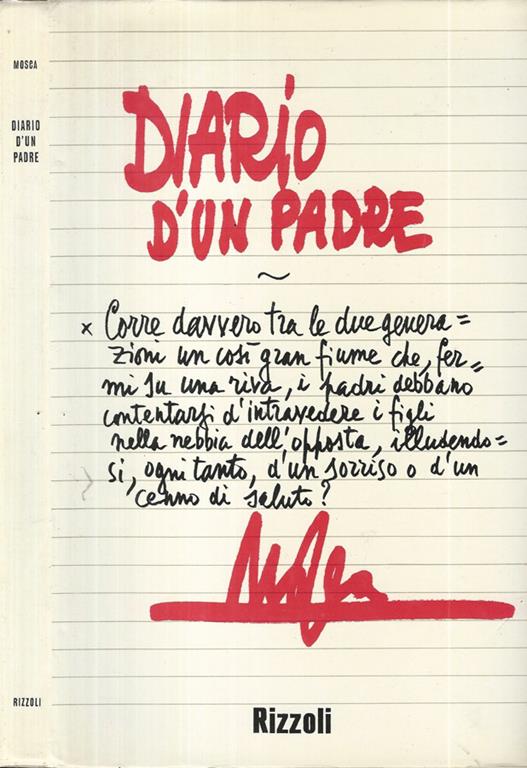 MOSCA
DIARIO
D'UN
PADRE
RIZZOLI
DIARIO
D'UN PADRE
~
x Corre davvero tra le due genera=
zioni un così gran fiume che, fer=
mi su una riva, i padri debbano
contentarsi d'intravedere i figli
nella nebbia dell'opposta, illudendo=
si, ogni tanto, d'un sorriso o d'un
cenno di saluto?
Mosca
Rizzoli